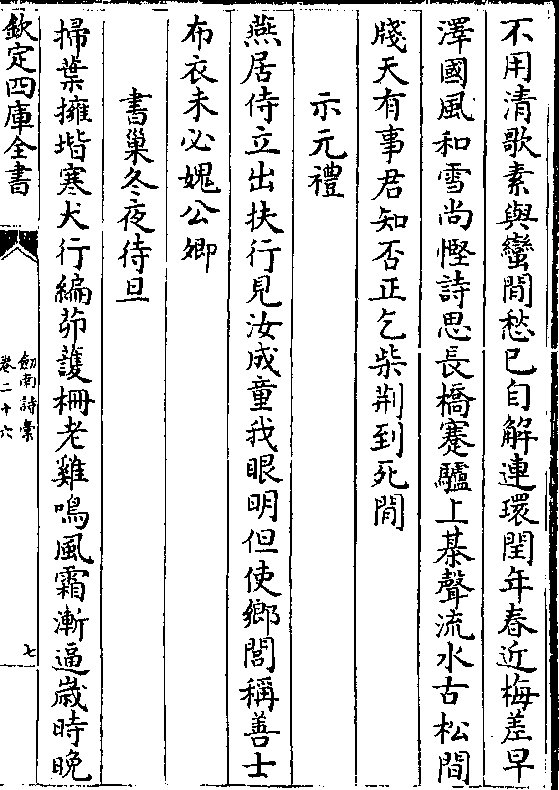 不用清歌素與蠻閒愁已自解連環閏年春近梅差早
澤國風和雪尚慳詩思長橋蹇驢上棊聲流水古松間
牋天有事君知否正乞柴荆到死閒
示元禮
燕居侍立出扶行見汝成童我眼明但使鄉閭稱善士
布衣未必媿公卿
書巢冬夜待旦
掃葉擁堦寒犬行編茆護柵老雞鳴風霜漸逼歲時晚
欽定四庫全書
劎南詩稾
卷二十六
七